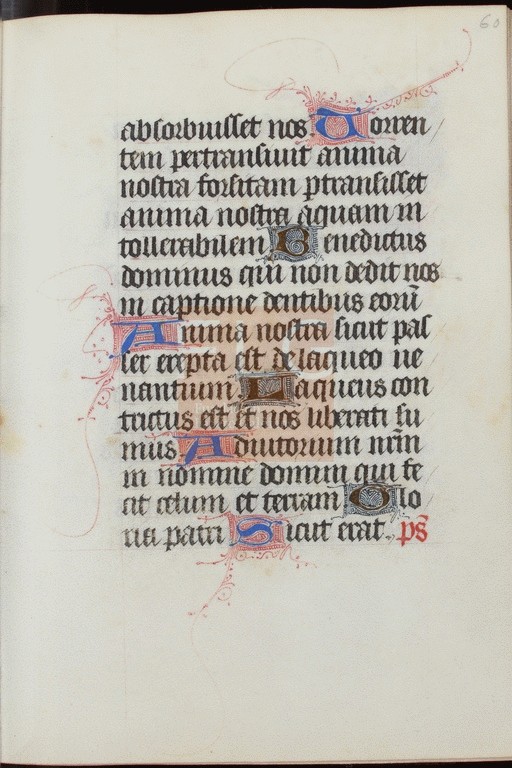 60
absorbuisset nos Torren
tem pertransiuit anima
nostra forsitam ptransisset
anima nostra aquam in
tollerabilem Benedictus
dominus qui non dedit nos
in captione dentibus eorū
Anima nostra sicut pas
ser erepta est de laqueo ue
nantium Laqueus con
tritus est et nos liberati su
mus Adiutorium nr̄m
in nomine domini qui fe
cit celum et terram Glo
ria patri Sicut erat. ps̄